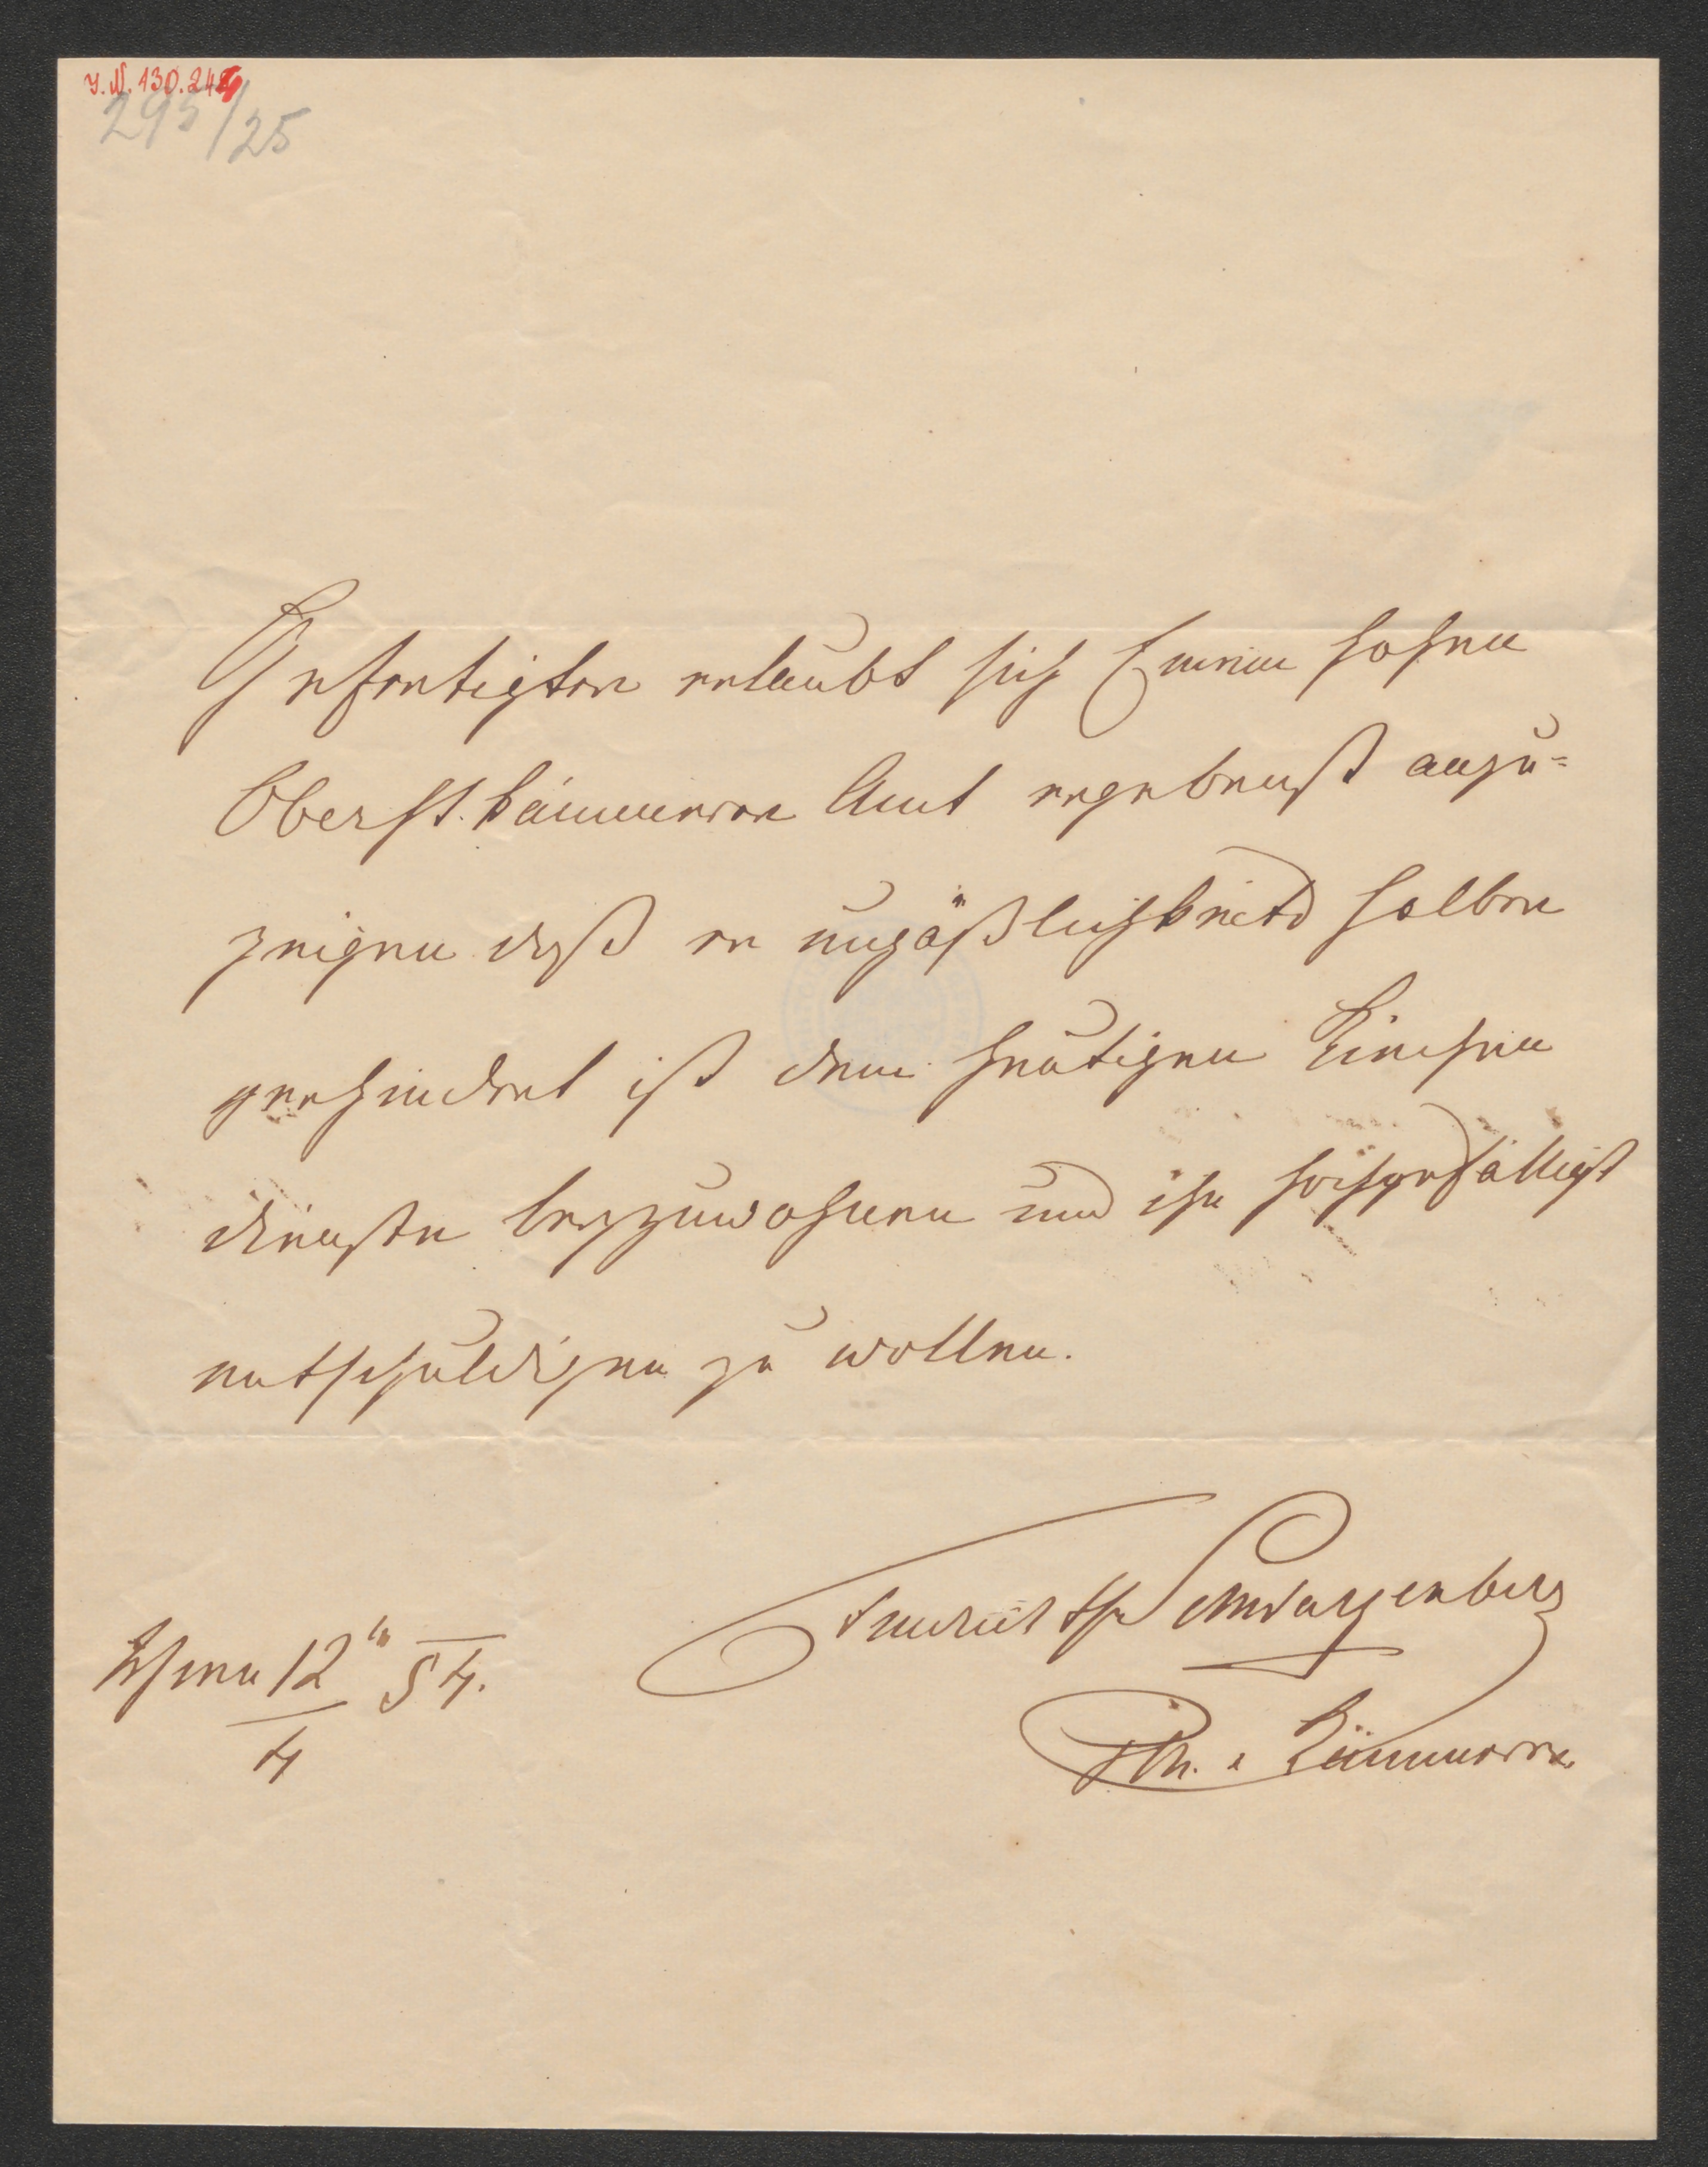 J.N. 130.244
295/25
Gefertigter erlaubt sich Einem hohen
Oberst. kämmerer Amt ergebenst anzu=
zeigen daß er unpäßlichkeits halber
verhindert ist dem heutigen Kirchen
dienste beyzuwohnen und ihn hochgefälligst
entschuldigen zu wollen.
Friedrich Schwarzenberg
Wien 12 54.
4
Kämmerer